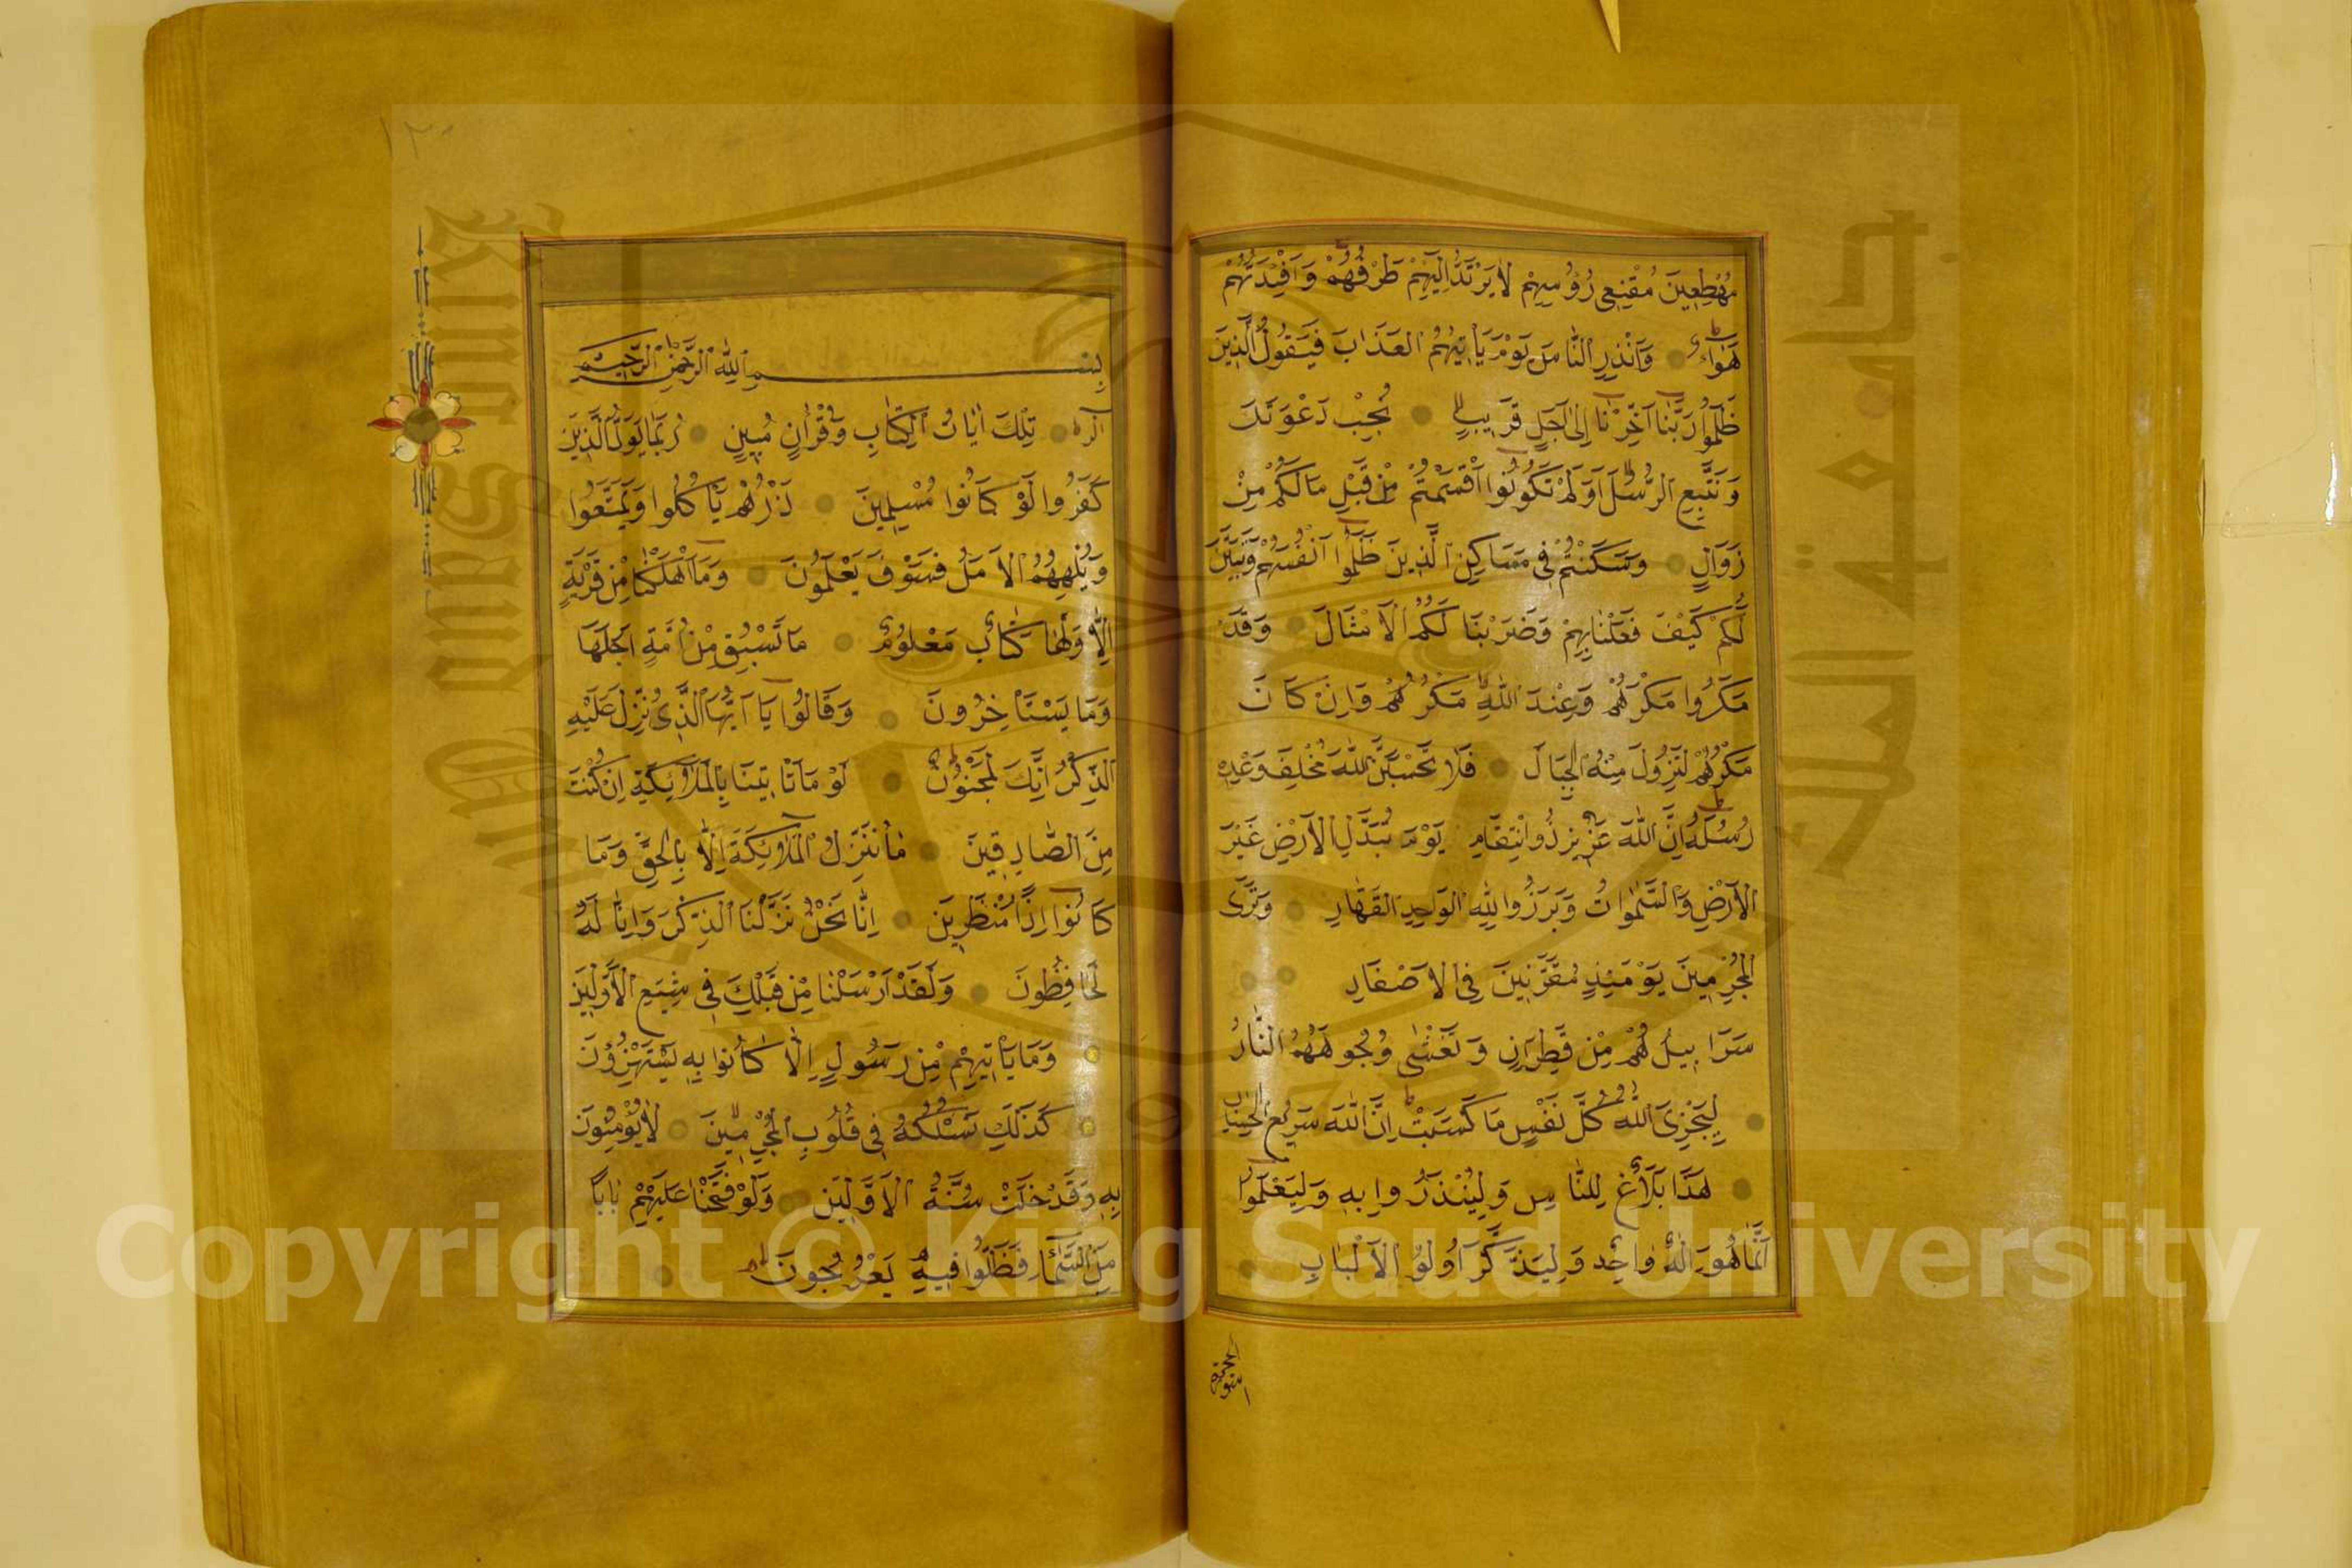 مُهْطِعِينَ مُقْنِعِي رُؤُسِهِمْ لَا يَرْتَدُّ اِلَيْهِمْ طَرْفُهُمْ وَاَفْئِدَتُهُمْ
هَوَاءٌ وَاَنْذِرِ النَّاسَ يَوْمَ يَاْتِيهِمُ الْعَذَابُ فَيَقُولُ الَّذِينَ
ظَلَمُوا رَبَّنَا اَخِّرْنَا اِلٰى اَجَلٍ قَرِيبٍ نُجِبْ دَعْوَتَكَ
وَنَتَّبِعِ الرُّسُلَ اَوَلَمْ تَكُونُوا اَقْسَمْتُمْ مِنْ قَبْلُ مَا لَكُمْ مِنْ
زَوَالٍ وَسَكَنْتُمْ فِي مَسَاكِنِ الَّذِينَ ظَلَمُوا اَنْفُسَهُمْ وَتَبَيَّنَ
لَكُمْ كَيْفَ فَعَلْنَا بِهِمْ وَضَرَبْنَا لَكُمُ الْاَمْثَالَ وَقَدْ
مَكَرُوا مَكْرَهُمْ وَعِنْدَ اللّٰهِ مَكْرُهُمْ وَاِنْ كَانَ
مَكْرُهُمْ لِتَزُولَ مِنْهُ الْجِبَالُ فَلَا تَحْسَبَنَّ اللّٰهَ مُخْلِفَ وَعْدِهِ
رُسُلَهُ اِنَّ اللّٰهَ عَزِيزٌ ذُو انْتِقَامٍ يَوْمَ تُبَدَّلُ الْاَرْضُ غَيْرَ
الْاَرْضِ وَالسَّمٰوَاتُ وَبَرَزُوا لِلّٰهِ الْوَاحِدِ الْقَهَّارِ وَتَرَى
الْمُجْرِمِينَ يَوْمَئِذٍ مُقَرَّنِينَ فِي الْاَصْفَادِ
سَرَابِيلُهُمْ مِنْ قَطِرَانٍ وَتَغْشٰى وُجُوهَهُمُ النَّارُ
لِيَجْزِيَ اللّٰهُ كُلَّ نَفْسٍ مَا كَسَبَتْ اِنَّ اللّٰهَ سَرِيعُ الْحِسَابِ
هٰذَا بَلَاغٌ لِلنَّاسِ وَلِيُنْذَرُوا بِهِ وَلِيَعْلَمُوا
اَنَّمَا هُوَ اِلٰهٌ وَاحِدٌ وَلِيَذَّكَّرَ اُولُوا الْاَلْبَابِ
١٢٠
بِسْمِ اللّٰهِ الرَّحْمٰنِ الرَّحِيمِ
الٓرٰ تِلْكَ اٰيَاتُ الْكِتَابِ وَقُرْاٰنٍ مُبِينٍ رُبَمَا يَوَدُّ الَّذِينَ
كَفَرُوا لَوْ كَانُوا مُسْلِمِينَ ذَرْهُمْ يَاْكُلُوا وَيَتَمَتَّعُوا
وَيُلْهِهِمُ الْاَمَلُ فَسَوْفَ يَعْلَمُونَ وَمَا اَهْلَكْنَا مِنْ قَرْيَةٍ
اِلَّا وَلَهَا كِتَابٌ مَعْلُومٌ مَا تَسْبِقُ مِنْ اُمَّةٍ اَجَلَهَا
وَمَا يَسْتَاْخِرُونَ وَقَالُوا يَا اَيُّهَا الَّذِي نُزِّلَ عَلَيْهِ
الذِّكْرُ اِنَّكَ لَمَجْنُونٌ لَوْ مَا تَاْتِينَا بِالْمَلَائِكَةِ اِنْ كُنْتَ
مِنَ الصَّادِقِينَ مَا نُنَزِّلُ الْمَلَائِكَةَ اِلَّا بِالْحَقِّ وَمَا
كَانُوا اِذًا مُنْظَرِينَ اِنَّا نَحْنُ نَزَّلْنَا الذِّكْرَ وَاِنَّا لَهُ
لَحَافِظُونَ وَلَقَدْ اَرْسَلْنَا مِنْ قَبْلِكَ فِي شِيَعِ الْاَوَّلِينَ
وَمَا يَاْتِيهِمْ مِنْ رَسُولٍ اِلَّا كَانُوا بِهِ يَسْتَهْزِؤُنَ
كَذٰلِكَ نَسْلُكُهُ فِي قُلُوبِ الْمُجْرِمِينَ لَا يُؤْمِنُونَ
بِهِ وَقَدْ خَلَتْ سُنَّةُ الْاَوَّلِينَ وَلَوْ فَتَحْنَا عَلَيْهِمْ بَابًا
مِنَ السَّمَاءِ فَظَلُّوا فِيهِ يَعْرُجُونَ
Copyright © King Saud University
King Saud University
جامعة الملك